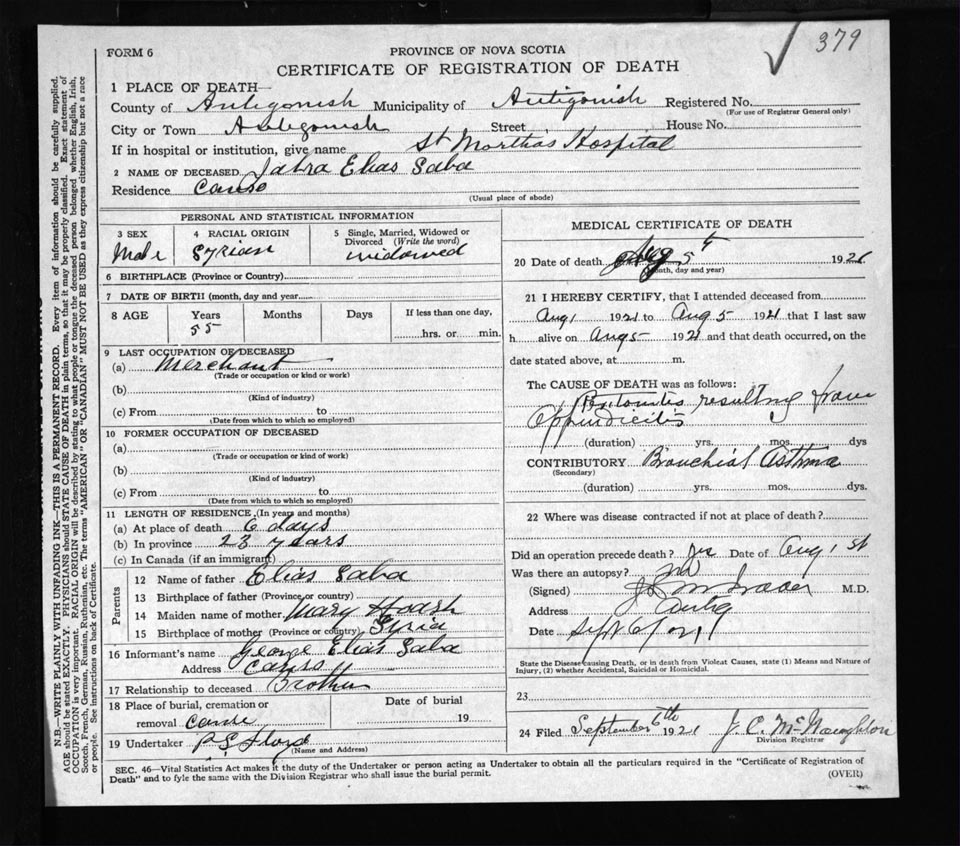 379
FORM 6
PROVINCE OF NOVA SCOTIA
CERTIFICATE OF REGISTRATION OF DEATH
1 PLACE OF DEATH—
County of Antigonish Municipality of Antigonish Registered No.
(For use of Registrar General only)
City or Town Antigonish Street House No.
If in hospital or institution, give name St Martha's Hospital
2 NAME OF DECEASED Jabra Elias Saba
Residence Canso
(Usual place of abode)
PERSONAL AND STATISTICAL INFORMATION
3 SEX 4 RACIAL ORIGIN 5 Single, Married, Widowed or
Divorced (Write the word)
Male Syrian widowed
6 BIRTHPLACE (Province or Country)
7 DATE OF BIRTH (month, day and year
8 AGE Years Months Days If less than one day,
55 hrs. or min.
9 LAST OCCUPATION OF DECEASED
(a) Merchant
(Trade or occupation or kind or work)
(b)
(Kind of industry)
(c) From to
(Date from which to which so employed)
10 FORMER OCCUPATION OF DECEASED
(a)
(Trade or occupation, or kind of work)
(b)
(Kind of industry)
(c) From to
(Date from which to which so employed)
11 LENGTH OF RESIDENCE (In years and months)
(a) At place of death 6 days
(b) In province 23 years
(c) In Canada (if an immigrant)
Parents
12 Name of father Elias Saba
13 Birthplace of father (Province or country)
14 Maiden name of mother Mary
15 Birthplace of mother (Province or country) Syria
16 Informant's name George Elias Saba
Address Canso
17 Relationship to deceased Brother
18 Place of burial, cremation or Date of burial
removal Canso 19
19 Undertaker
(Name and Address)
MEDICAL CERTIFICATE OF DEATH
20 Date of death Aug 5 1921
(Month, day and year)
21 I HEREBY CERTIFY, that I attended deceased from
Aug 1 1921 to Aug 5 1921 that I last saw
h alive on Aug 5 1921 and that death occurred, on the
date stated above, at m.
The CAUSE OF DEATH was as follows:
Peritonitis resulting from
Appendicitis
(duration) yrs. mos. dys
CONTRIBUTORY Bronchial Asthma
(Secondary)
(duration) yrs. mos. dys.
22 Where was disease contracted if not at place of death?
Did an operation precede death? yes Date of Aug 1st
Was there an autopsy? no
(Signed) M.D.
Address Antig
Date Sept 6/21
State the Disease causing Death, or in death from Violent Causes, state (1) Means and Nature of
Injury, (2) whether Accidental, Suicidal or Homicidal.
23
24 Filed September 6th 1921 J. C. McNaughton
Division Registrar
SEC. 46—Vital Statistics Act makes it the duty of the Undertaker or person acting as Undertaker to obtain all the particulars required in the "Certificate of Registration of
Death" and to fyle the same with the Division Registrar who shall issue the burial permit.
(OVER)
N.B.—WRITE PLAINLY WITH UNFADING INK—THIS IS A PERMANENT RECORD. Every item of information should be carefully supplied.
AGE should be stated EXACTLY. PHYSICIANS should STATE CAUSE OF DEATH in plain terms, so that it may be properly classified. Exact statement of
OCCUPATION is very important. RACIAL ORIGIN will be described by stating to what people or tongue the deceased person belonged whether English, Irish,
Scotch, French, German, Russian, Ruthenian, etc. The terms "AMERICAN" OR "CANADIAN" MUST NOT BE USED as they express citizenship but not a race
or people. See instructions on back of Certificate.